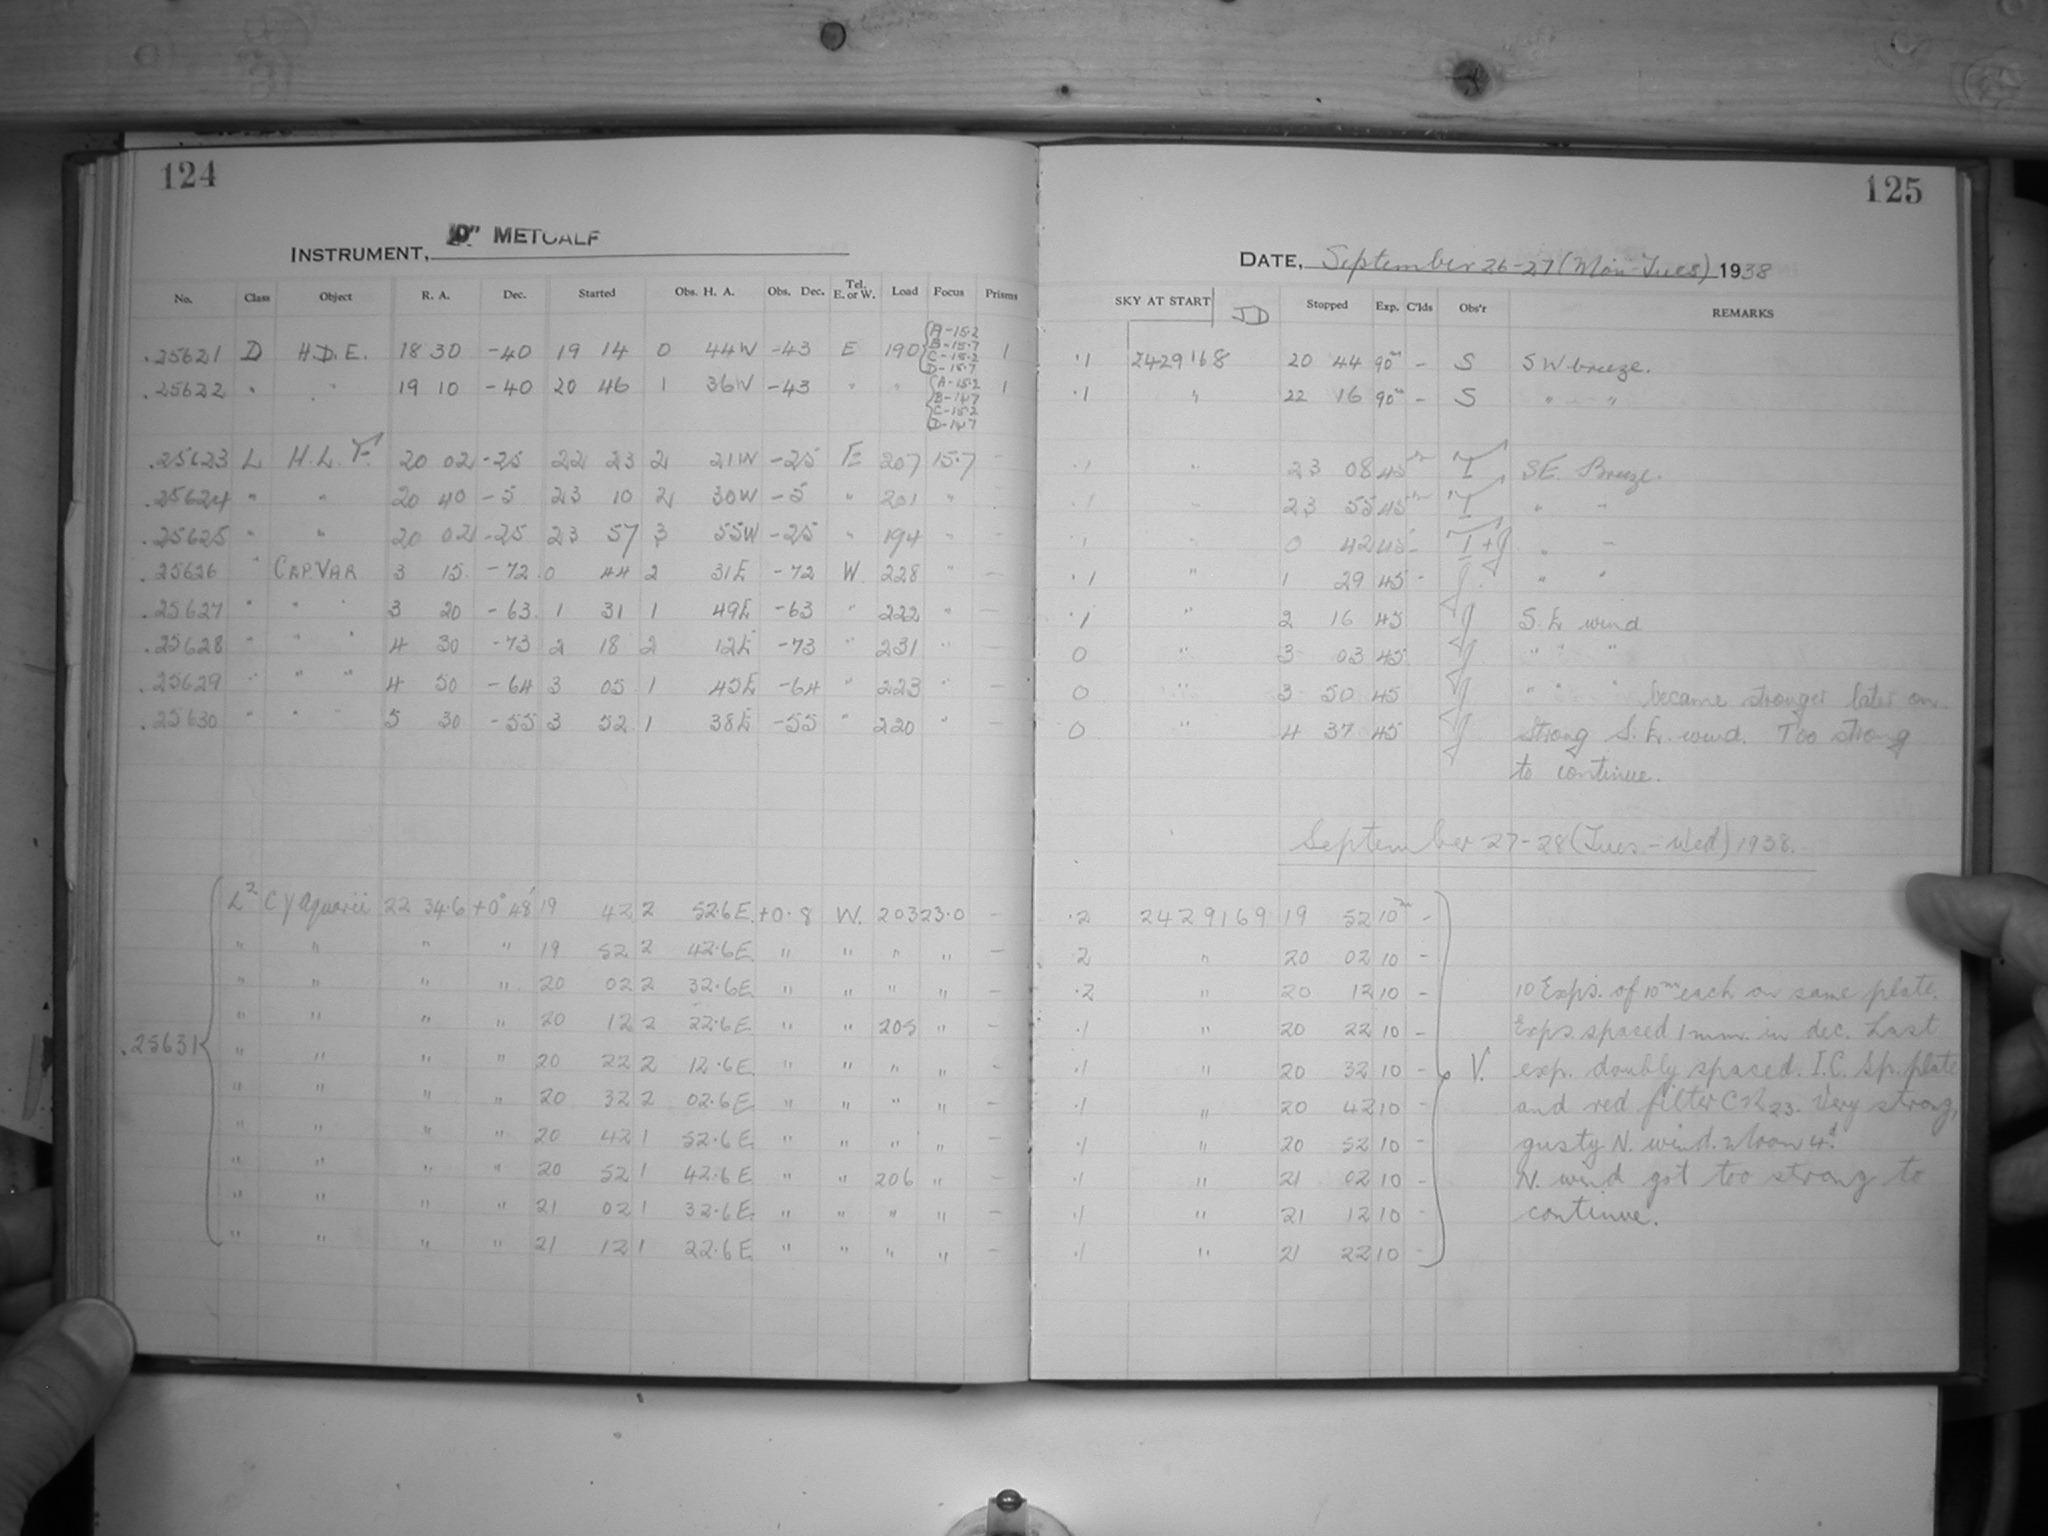 124
INSTRUMENT, "D" METCALF
No. Class Object R. A. Dec. Started Obs. H. A. Obs. Dec. Tel. E. or W. Load Focus Prisms
.25621 D H.D.E. 18 30 -40 19 14 0 44W -43 E 190 {A-15.2 B-15.7 C-15.2 D-15.7 1
.25622 " " 19 10 -40 20 46 1 36W -43 " " {A-15.2 B-14.7 C-15.2 D-14.7 1
.25623 L H.L.F. 20 02 -25 22 23 2 21W -25 E 207 15.7 -
.25624 " " 20 40 -5 23 10 2 30W -5 " 201 " -
.25625 " " 20 02 -25 23 57 3 55W -25 " 194 " -
.25626 " CAP.VAR 3 15 -72 0 44 2 31E -72 W. 228 " -
.25627 " " " 3 20 -63 1 31 1 49E -63 " 222 " -
.25628 " " " 4 30 -73 2 18 2 12E -73 " 231 " -
.25629 " " " 4 50 -64 3 05 1 45E -64 " 223 " -
.25630 " " " 5 30 -55 3 52 1 38E -55 " 220 " -
.25631 { L² CY Aquarii 22 34.6 +0° 48' 19 42 2 52.6E. +0.8 W. 203 23.0 -
" " " " 19 52 2 42.6E. " " " " -
" " " " 20 02 2 32.6E. " " " " -
" " " " 20 12 2 22.6E. " " 205 " -
" " " " 20 22 2 12.6E. " " " " -
" " " " 20 32 2 02.6E. " " " " -
" " " " 20 42 1 52.6E. " " " " -
" " " " 20 52 1 42.6E. " " 206 " -
" " " " 21 02 1 32.6E. " " " " -
" " " " 21 12 1 22.6E. " " " " -
125
DATE, September 26-27 (Mon-Tues) 1938
SKY AT START JD Stopped Exp. C'lds Obs'r REMARKS
.1 2429168 20 44 90m - S SW breeze.
.1 " 22 16 90m - S " "
.1 " 23 08 45m T SE. Breeze.
.1 " 23 55 45m T " "
.1 " 0 42 45 - T+J " "
.1 " 1 29 45 - J " "
.1 " 2 16 45 J S. E. wind
0 " 3 03 45 J " " "
0 " 3 50 45 J " " " became stronger later on.
0 " 4 37 45 J Strong S. E. wind. Too strong
to continue.
September 27-28 (Tues-Wed) 1938.
.2 2429169 19 52 10m -
2 " 20 02 10 -
.2 " 20 12 10 - 10 Exps. of 10m each on same plate.
.1 " 20 22 10 - Exps. spaced 1mm. in dec. Last
.1 " 20 32 10 - V. exp. doubly spaced. I.C. Sp. plate
.1 " 20 42 10 - and red filter 23. Very strong,
.1 " 20 52 10 - gusty N. wind. Moon 4d.
.1 " 21 02 10 - N. wind got too strong to
.1 " 21 12 10 - continue.
.1 " 21 22 10 -